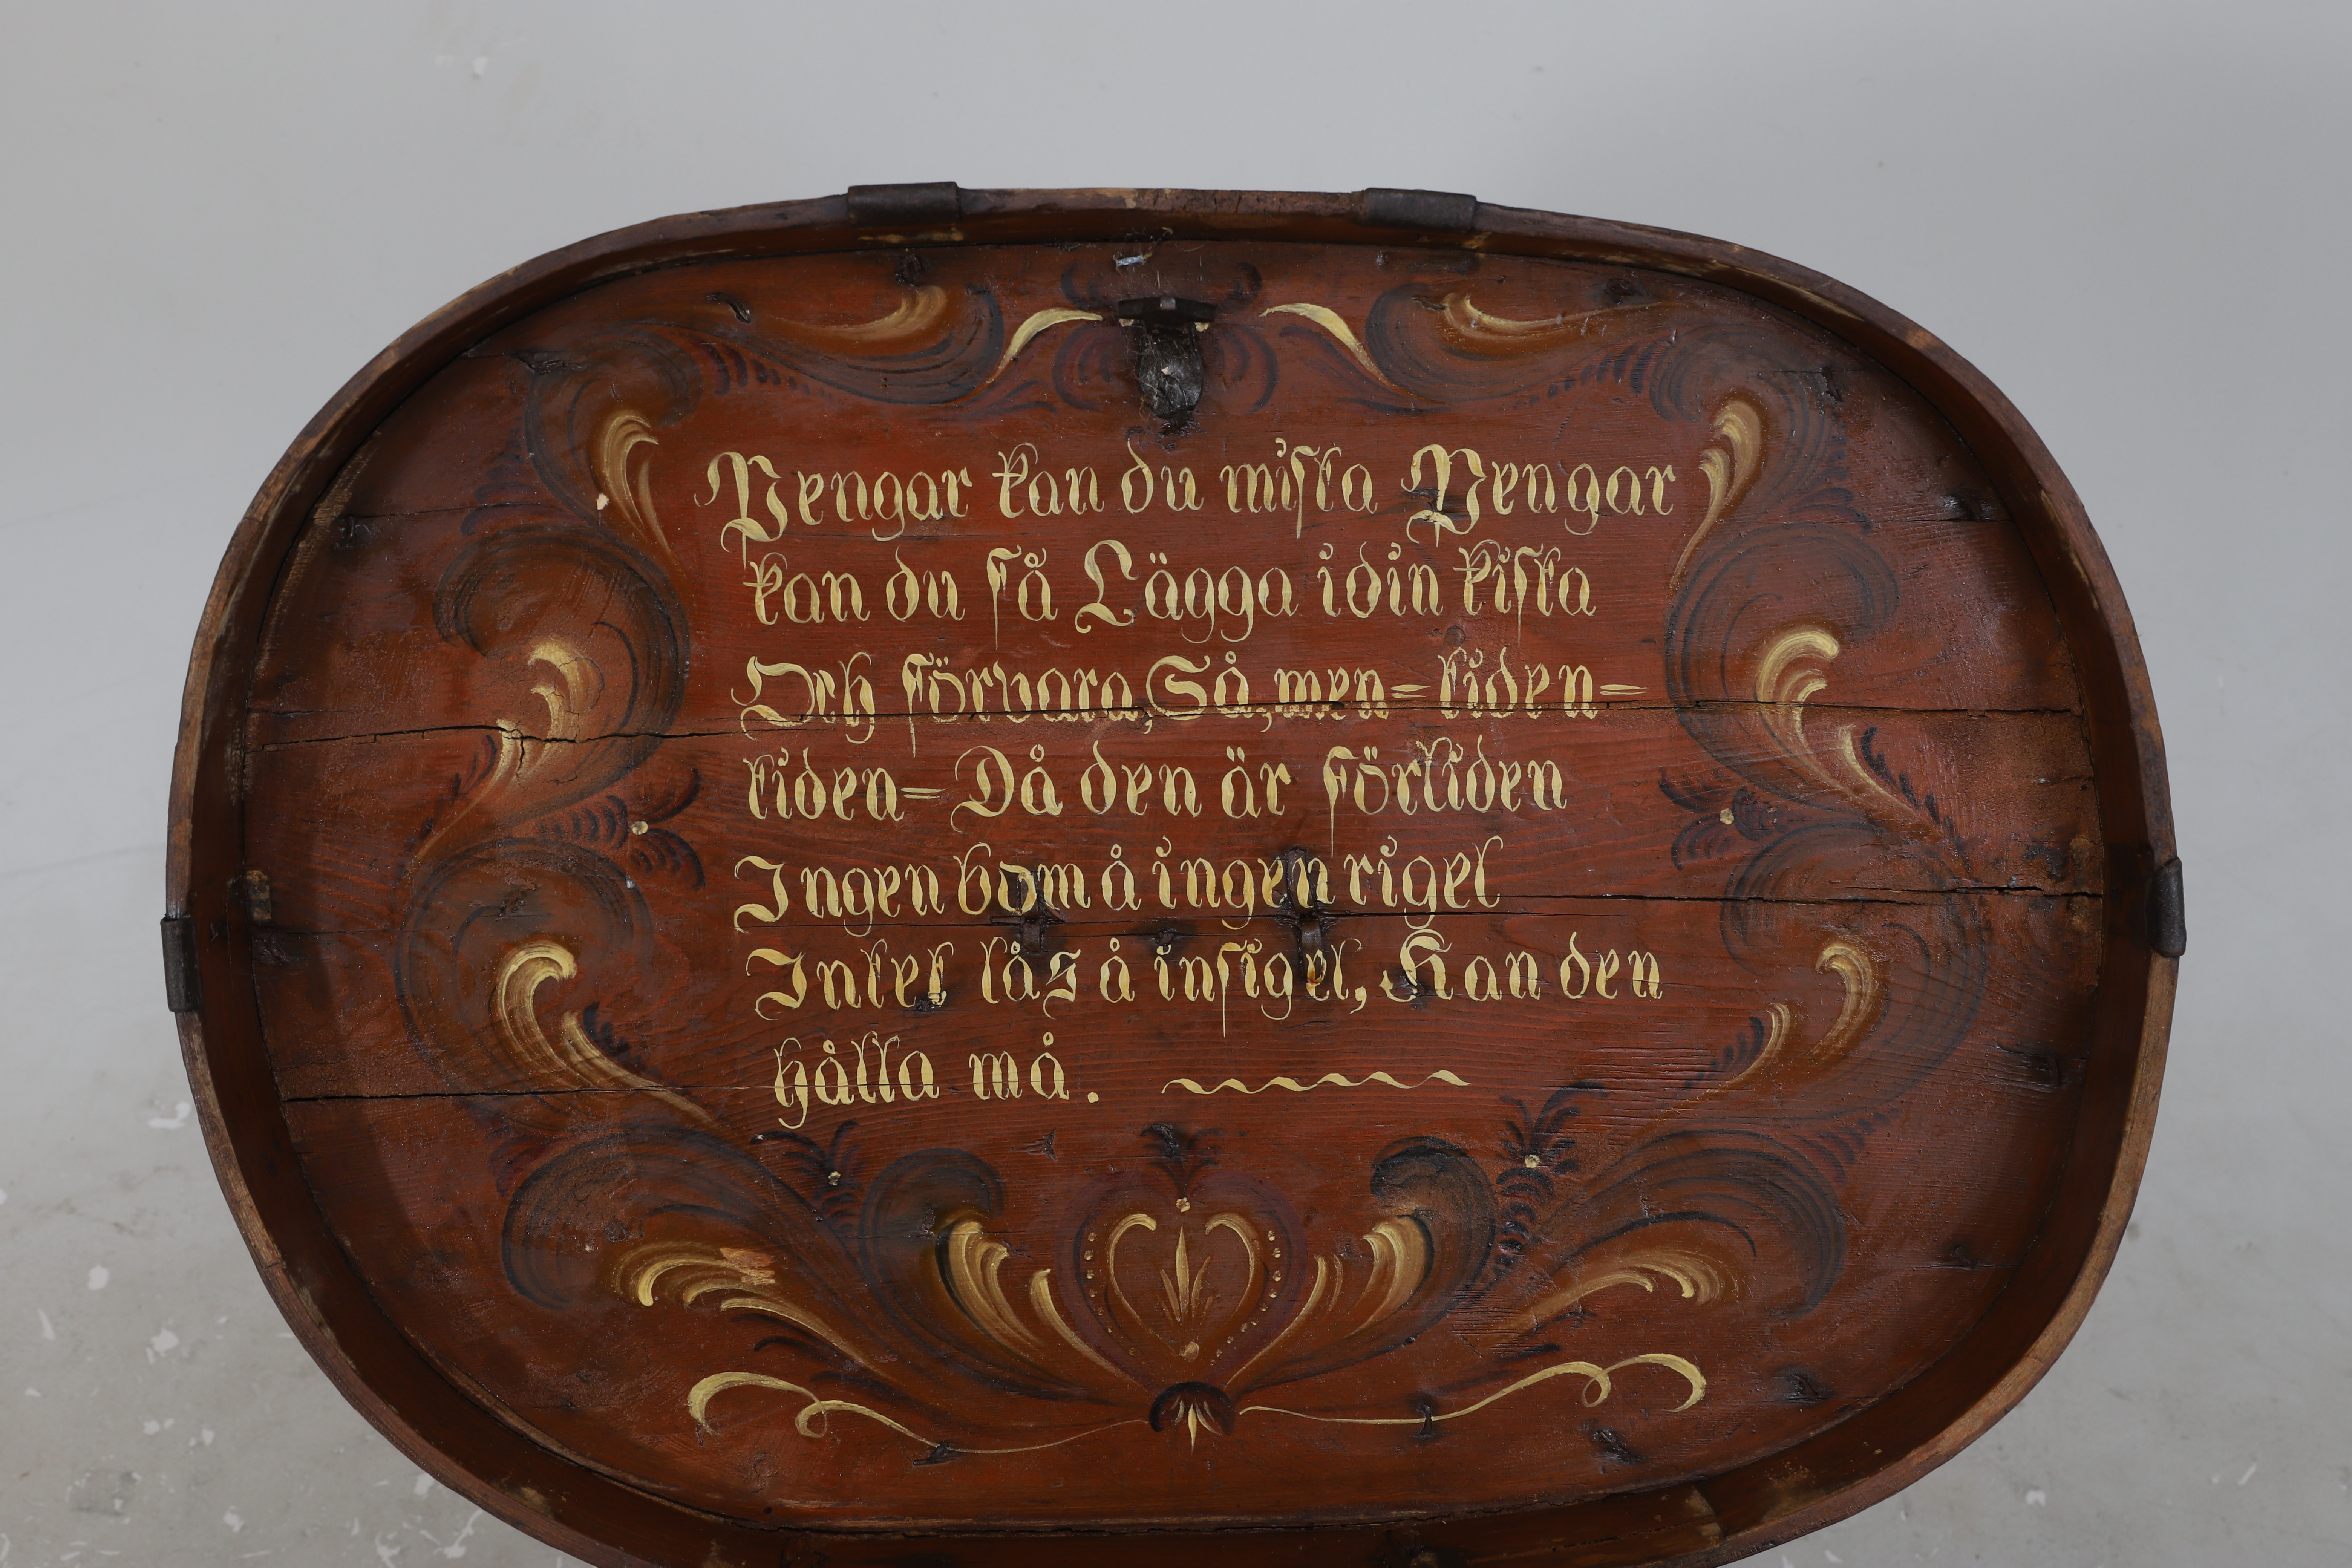 Pengar kan du mista Pengar
kan du få Lägga idin kista
Och förvara, Så, men= tiden=
tiden= Då den är förliden
Ingen bom å ingen rigel
Intet lås å insigel, Kan den
hålla må.